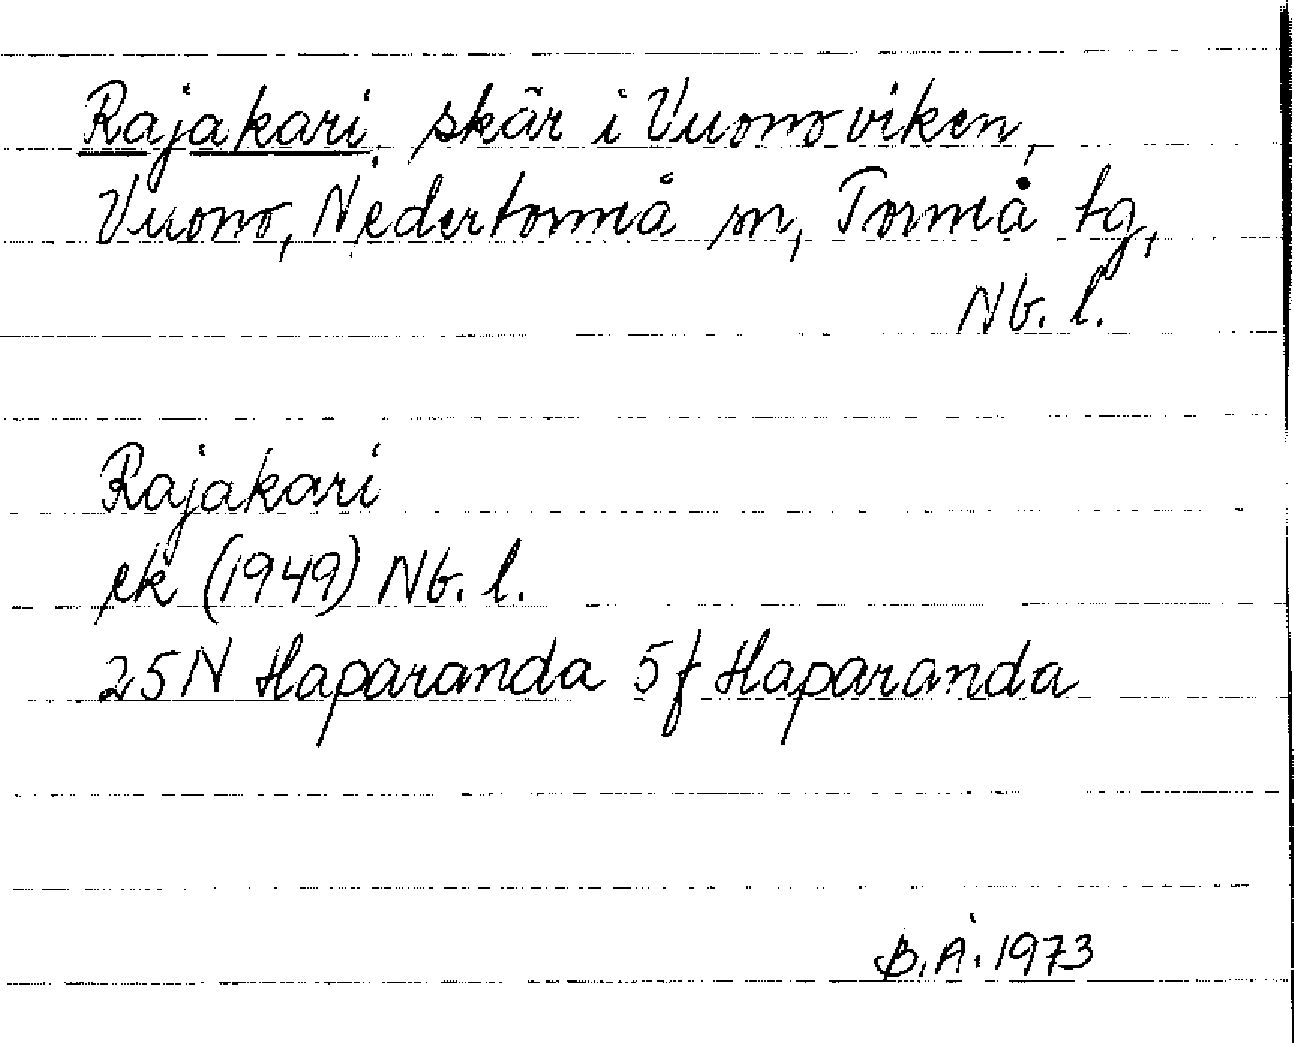 Rajakari, skär i Vuonoviken,
Vuono, Nedertorneå sn, Torneå tg,
Nb. l.
Rajakari
ek (1949) Nb. l.
25N Haparanda 5f Haparanda
B.Å. 1973